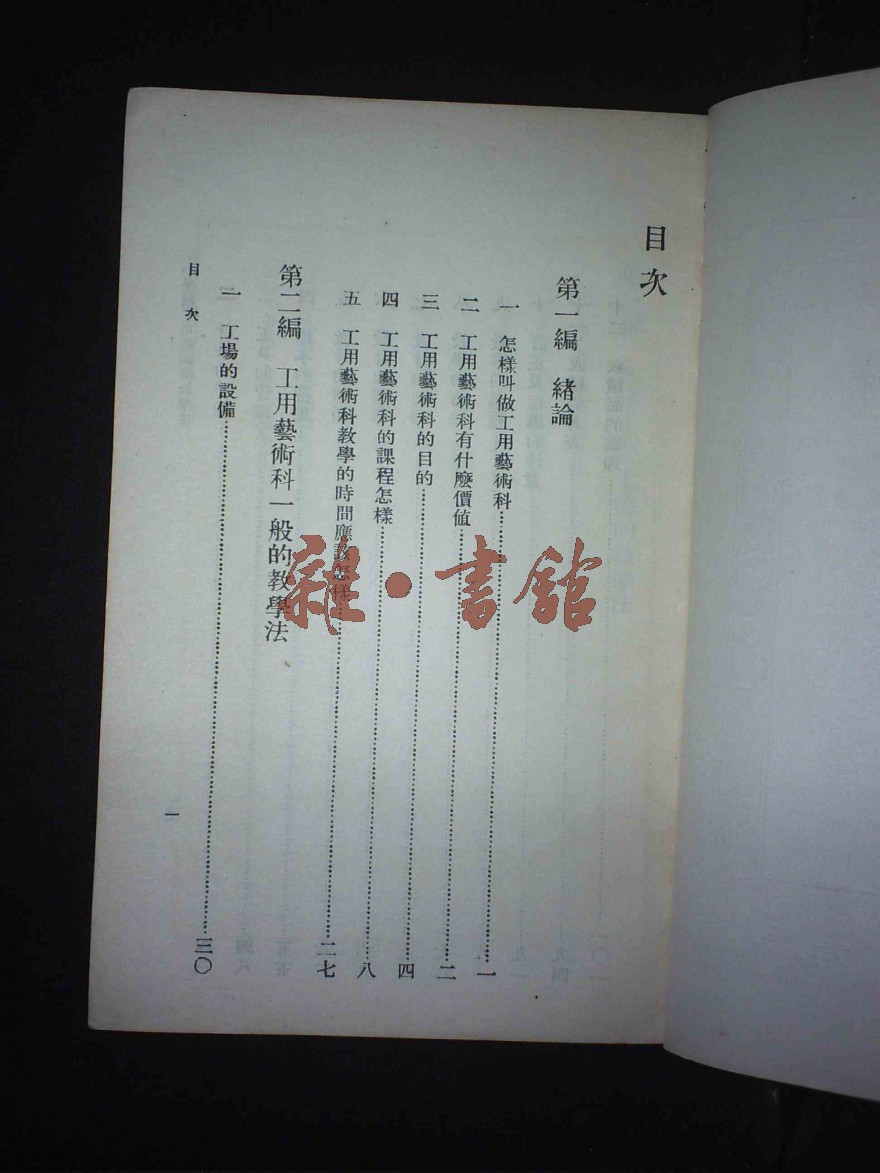 目次
第一編　緒論
一　怎樣叫做工用藝術科……一
二　工用藝術科有什麼價值……二
三　工用藝術科的目的……四
四　工用藝術科的課程怎樣……八
五　工用藝術科教學的時間應該怎樣……二七
第二編　工用藝術科一般的教學法
一　工場的設備……三〇
目次
一
雜·書館